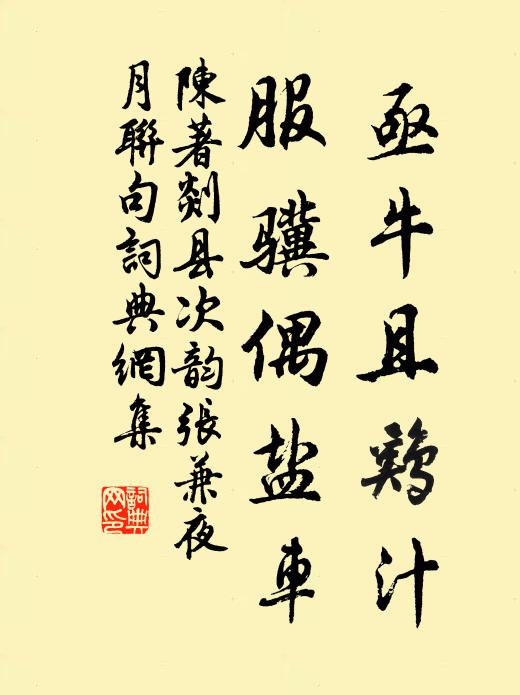 亟牛且鷄汁
服骥偶盐車
陳著剡县次韵张兼夜
月聯句詞典網集
詞典网印